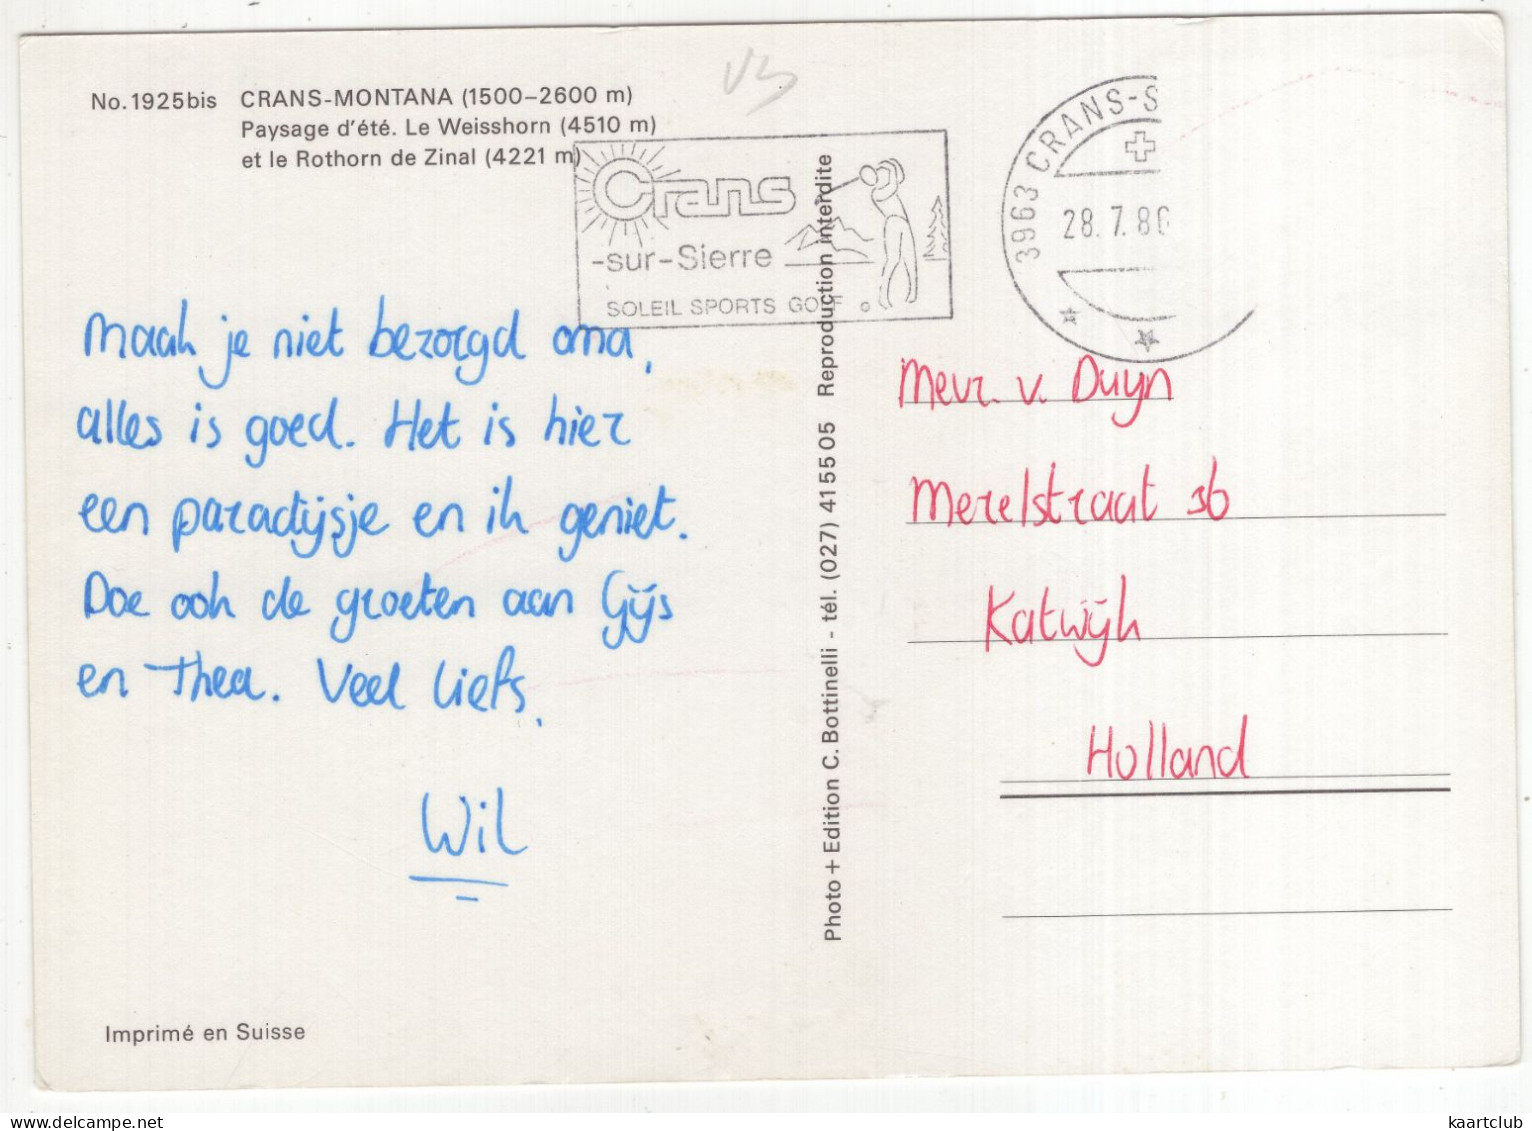 No. 1925bis CRANS-MONTANA (1500–2600 m)
Paysage d'été. Le Weisshorn (4510 m)
et le Rothorn de Zinal (4221 m)
Crans
-sur-Sierre
SOLEIL SPORTS GOLF
3963 CRANS-S
28.7.86
Maak je niet bezorgd oma,
alles is goed. Het is hier
een paradijsje en ik geniet.
Doe ook de groeten aan Gijs
en Thea. Veel liefs,
Wil
Imprimé en Suisse
Photo + Edition C. Bottinelli - tél. (027) 41 55 05 Reproduction interdite
Mevr. v. Duyn
Merelstraat 36
Katwijk
Holland
www.delcampe.net
kaartclub